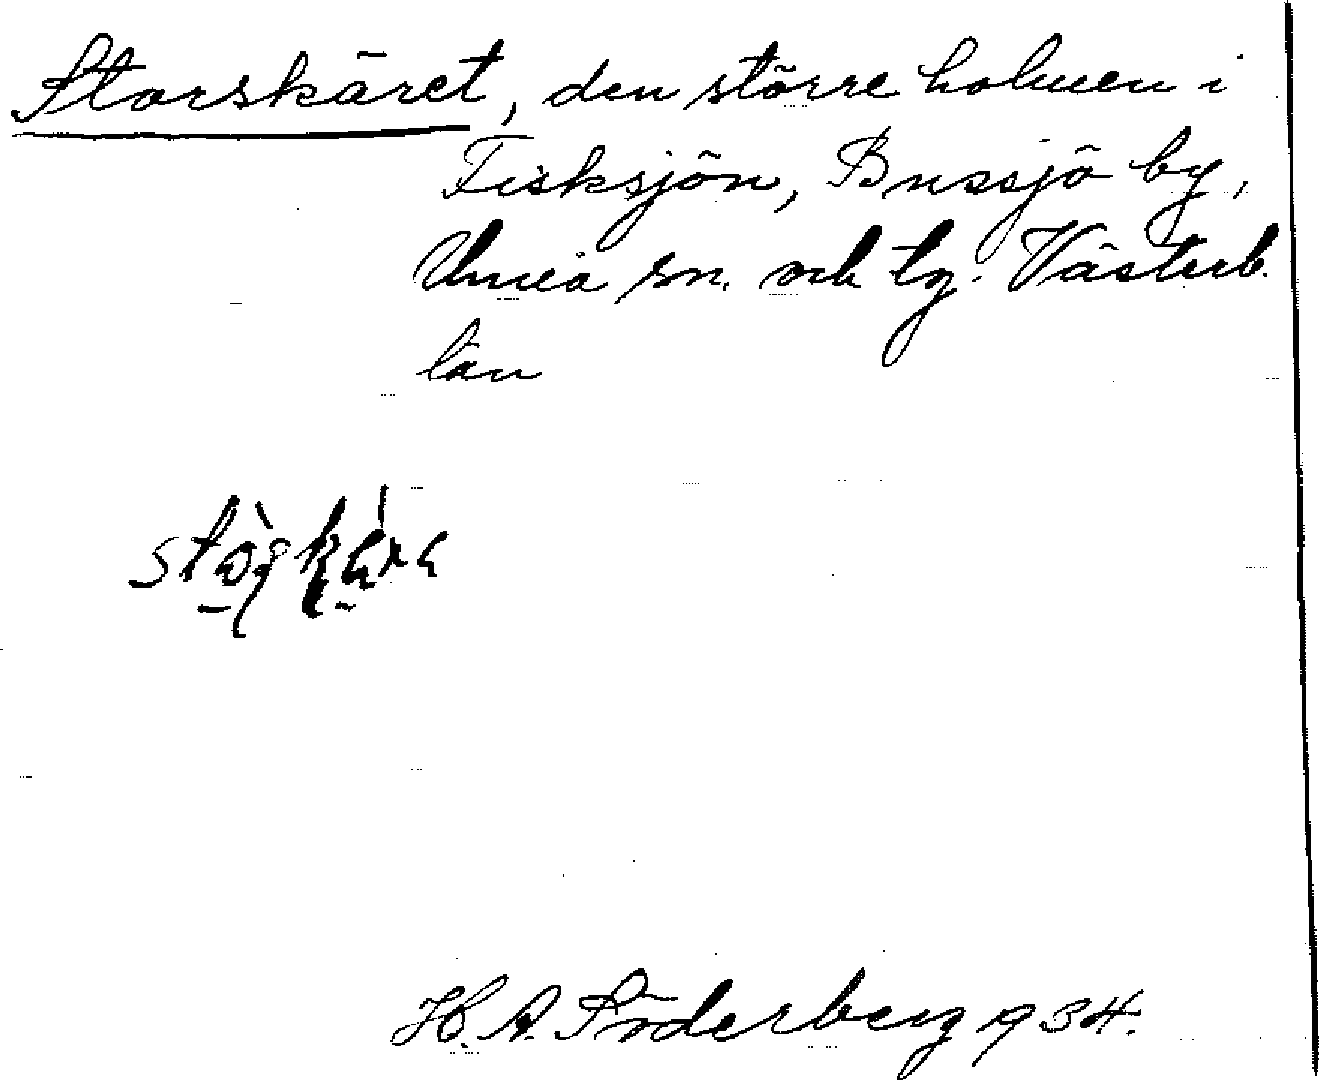 Storskäret, den större holmen i
Fisksjön, Bussjö by,
Umeå sn. och tg. Västerb.
län
H. A. Söderberg 1934.